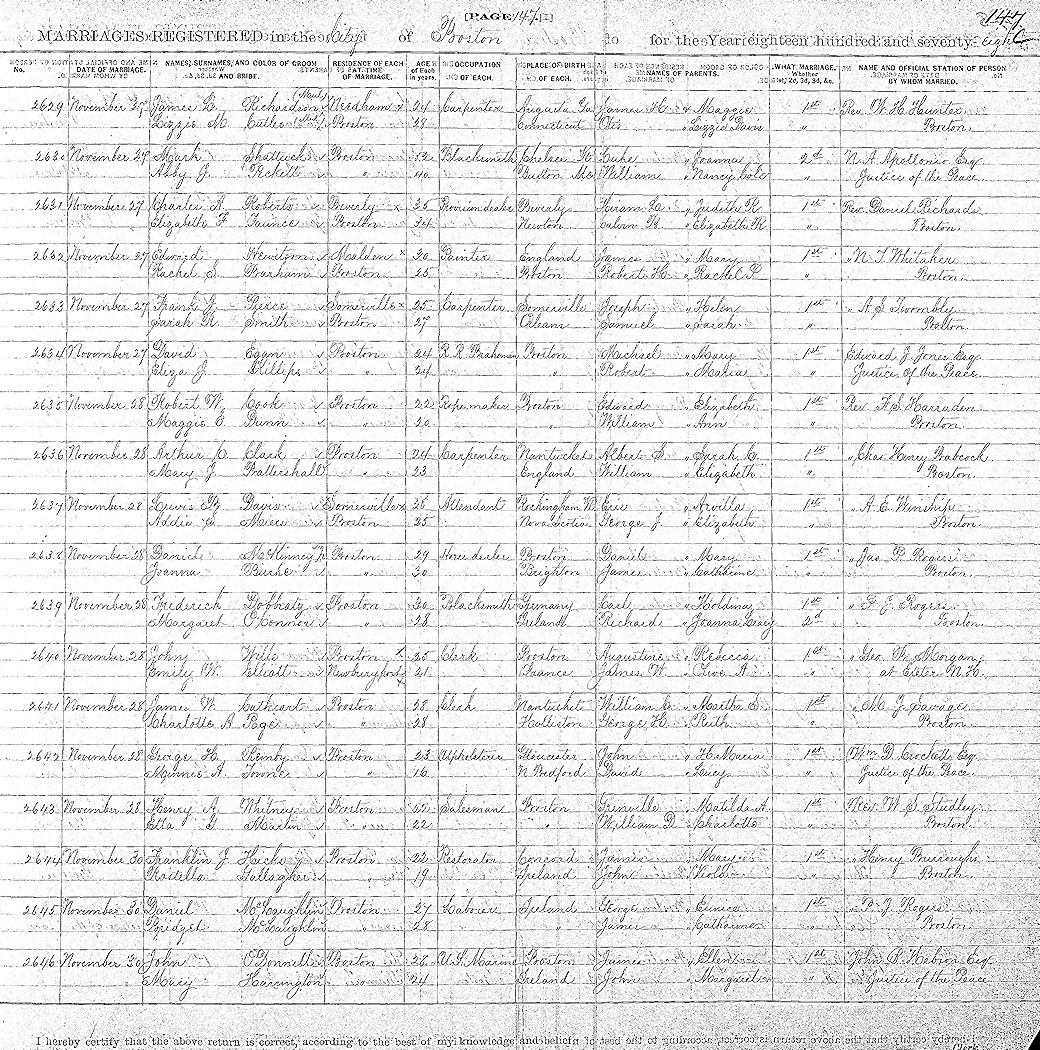 [PAGE 147.]
147
MARRIAGES REGISTERED in the City of Boston for the Year eighteen hundred and seventy-Eight
No. DATE OF MARRIAGE. NAMES, SURNAMES, AND COLOR OF GROOM AND BRIDE. RESIDENCE OF EACH AT TIME OF MARRIAGE. AGE of Each in years. OCCUPATION OF EACH. PLACE OF BIRTH OF EACH. NAMES OF PARENTS. WHAT MARRIAGE. Whether 1st, 2d, 3d, &c. NAME AND OFFICIAL STATION OF PERSON BY WHOM MARRIED.
2629 November 27 James Richardson (Mul) Needham x 24 Carpenter Augusta Ga James H. " Maggie 1st Rev. W. H. Hunter
Lizzie M. Cutler (Mul) Boston 28 Connecticut Otis " Lizzie Davis " Boston
2630 November 27 Mark Shattuck Boston 52 Blacksmith Luke " Joanna 2d N. A. Apollonio Esq
Abby J. Pickett " 40 Buxton Me William " Nancy Cole " Justice of the Peace
2631 November 27 Charles A. Roberts Beverly x 35 Provision dealer Beverly Hiram " Judith R. 1st Rev. Daniel Richards
Elizabeth F. Faunce Boston 34 Newton Calvin B. " Elizabeth R. " Boston.
2632 November 27 Edward Hewitson Malden x 30 Painter England James " Mary 1st " N. T. Whitaker
Rachel Barham Boston 25 Boston Robert H. " Rachel P. " Boston.
2633 November 27 Frank J. Pierce Somerville x 25 Carpenter Somerville Joseph " Helen 1st " A. S. Twombly
Sarah Smith Boston 27 Orleans Samuel " Sarah " Boston
2634 November 27 David Egan Boston 24 R. R. Brakeman Boston Michael " Mary 1st Edward J. Jones Esq
Eliza J. Phillips " 24 " Robert " Maria " Justice of the Peace
2635 November 28 Robert W. Cook Boston 22 Ropemaker Boston Edward " Elizabeth 1st Rev. F. S. Harraden
Maggie E. Dunn " 20 " William " Ann " Boston.
2636 November 28 Arthur C. Clark Boston 24 Carpenter Nantucket Albert S. " Sarah C. 1st " Chas Henry Babcock
Mary J. Battershall " 23 England William " Elizabeth " Boston
2637 November 28 Lewis Davis Somerville x 26 Attendant Rockingham Vt " Arvilla 1st " A. E. Winship
Addie Boston 25 Nova Scotia George J. " Elizabeth " Boston.
2638 November 28 Daniel McKinney Jr Boston 29 Horse dealer Boston Daniel " Mary 1st " Jas. P. Rogers
Joanna Burke " 30 Brighton James " Catharine " Boston.
2639 November 28 Frederick Boston 30 Blacksmith Germany Carl " 1st " P. J. Rogers
Margaret O'Connor " 28 Ireland Richard " Joanna Leary 2d Boston.
2640 November 28 John Wills Boston x 25 Clerk Boston Augustine " Rebecca 1st " Geo. B. Morgan,
Emily W. Elliott Newburyport x 21 France James W. " Olive A. " at Exeter N.H.
2641 November 28 James W. Cathcart Boston 28 Clerk Nantucket William C. " Martha E. 1st " M. J. Savage
Charlotte A. Page " 28 Holliston George H. " Ruth " Boston
2642 November 28 George H. Boston 23 Upholsterer Gloucester John " H. Maria 1st Wm. D. Crockett Esq
Minnie A. " 16 N. Bedford David " Lucy " Justice of the Peace.
2643 November 28 Henry A. Whitney Boston 22 Salesman Boston Grenville " Matilda A. 1st Rev. W. S. Studley
Etta Martin " 22 " William D. " Charlotte " Boston.
2644 November 30 Franklin J. Boston 22 Concord James " Mary 1st " Henry Burroughs
Gallagher " 19 Ireland John " " Boston.
2645 November 30 Daniel McLaughlin Boston 27 Laborer Ireland George " Eunice 1st " P. J. Rogers
Bridget McLaughlin " 28 " James " Catharine " Boston.
2646 November 30 John O'Donnell Boston 28 U.S. Marine Boston James " Ellen 1st John B. Hebron Esq
" Mary Harrington " 24 Ireland John " Margaret " Justice of the Peace
I hereby certify that the above return is correct, according to the best of my knowledge and belief.